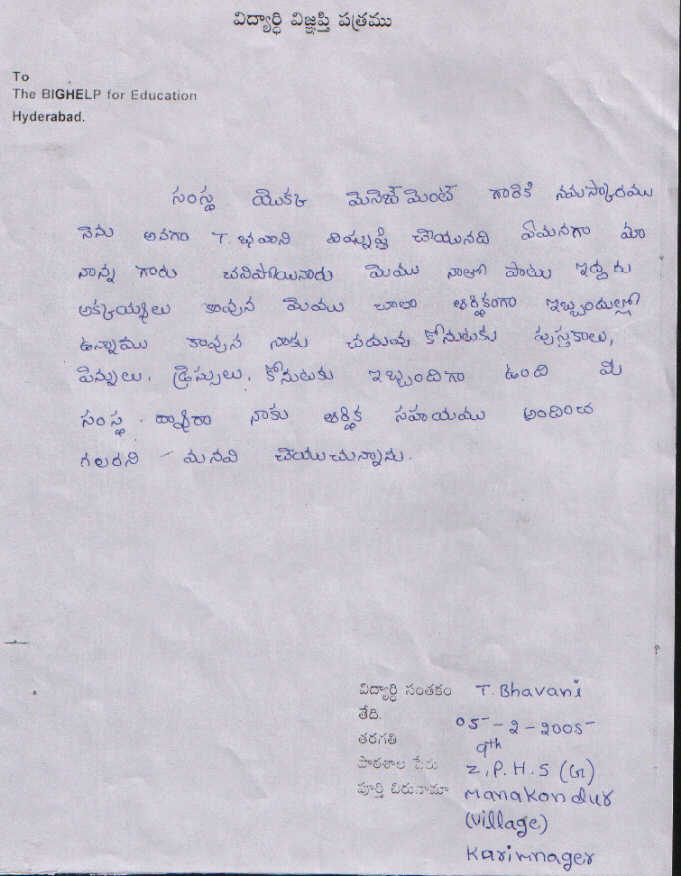 విద్యార్థి విజ్ఞప్తి పత్రము
To
The BIGHELP for Education
Hyderabad.
సంస్థ యొక్క మెనేజ్ మెంట్ గారికి నమస్కారము
నెను అనగా T. భవాని విజ్ఞప్తి చేయునది ఏమనగా మా
నాన్న గారు చనిపోయినారు మెము నాతో పాటు ఇద్దరు
అక్కయ్యలు కావున మెము చాలా ఆర్థికంగా ఇబ్బందుల్లో
ఉన్నాము కావున నాకు చదువు కోనుటకు పుస్తకాలు,
పెన్నులు, డ్రెస్సులు, కోనుటకు ఇబ్బందిగా ఉంది మీ
సంస్థ ద్వారా నాకు ఆర్థిక సహయము అందించ
గలరని మనవి చేయుచున్నాను.
విద్యార్థి సంతకం T. Bhavani
తేది. 05-2-2005
తరగతి 9th
పాఠశాల పేరు Z.P.H.S (G)
పూర్తి చిరునామా Manakondur
(village)
Karimnager